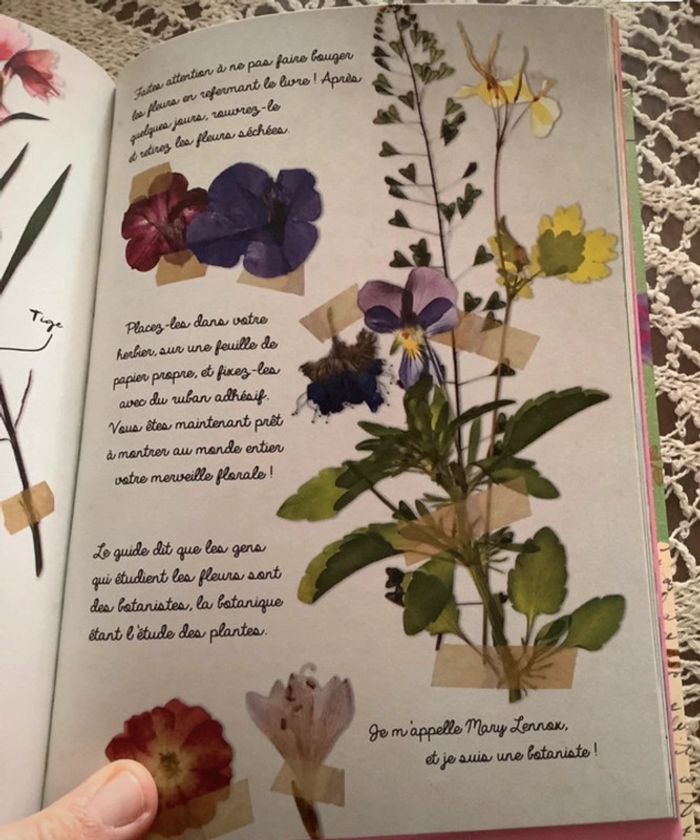 Faites attention à ne pas faire bouger
les fleurs en refermant le livre ! Après
quelques jours, rouvrez-le
et retirez les fleurs séchées.
Tige
Placez-les dans votre
herbier, sur une feuille de
papier propre, et fixez-les
avec du ruban adhésif.
Vous êtes maintenant prêt
à montrer au monde entier
votre merveille florale !
Le guide dit que les gens
qui étudient les fleurs sont
des botanistes, la botanique
étant l'étude des plantes.
Je m'appelle Mary Lennox,
et je suis une botaniste !